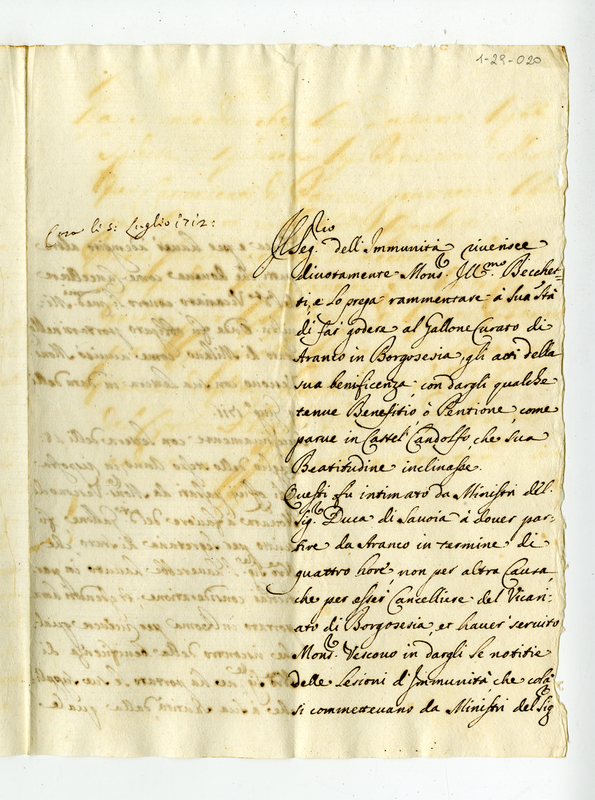 1-29-020
Casa li 5: Luglio 1712:
Il Seg.rio dell'Immunità riverisce
divotamente Mons.r Ill.mo Becchet-
ti, e lo prega rammentare à Sua S.tà
di far godere al Gallone Curato di
Aranco in Borgosesia, gli atti della
sua benificenza, con dargli qualche
tenue Benefitio, ò Pentione, come
parue in Castel Candolfo, che sua
Beatitudine inclinasse.
Questi fu intimato da Ministri del
Sig.r Duca di Savoia à dover par-
tire da Aranco in termine di
quattro hore, non per altra Causa,
che per esser Cancelliere del Vicari-
ato di Borgosesia, et haver servito
Mons.r Vescovo in dargli le notitie
delle Lesioni d'Immunità che colà
si commettevano da Ministri del Sig.r